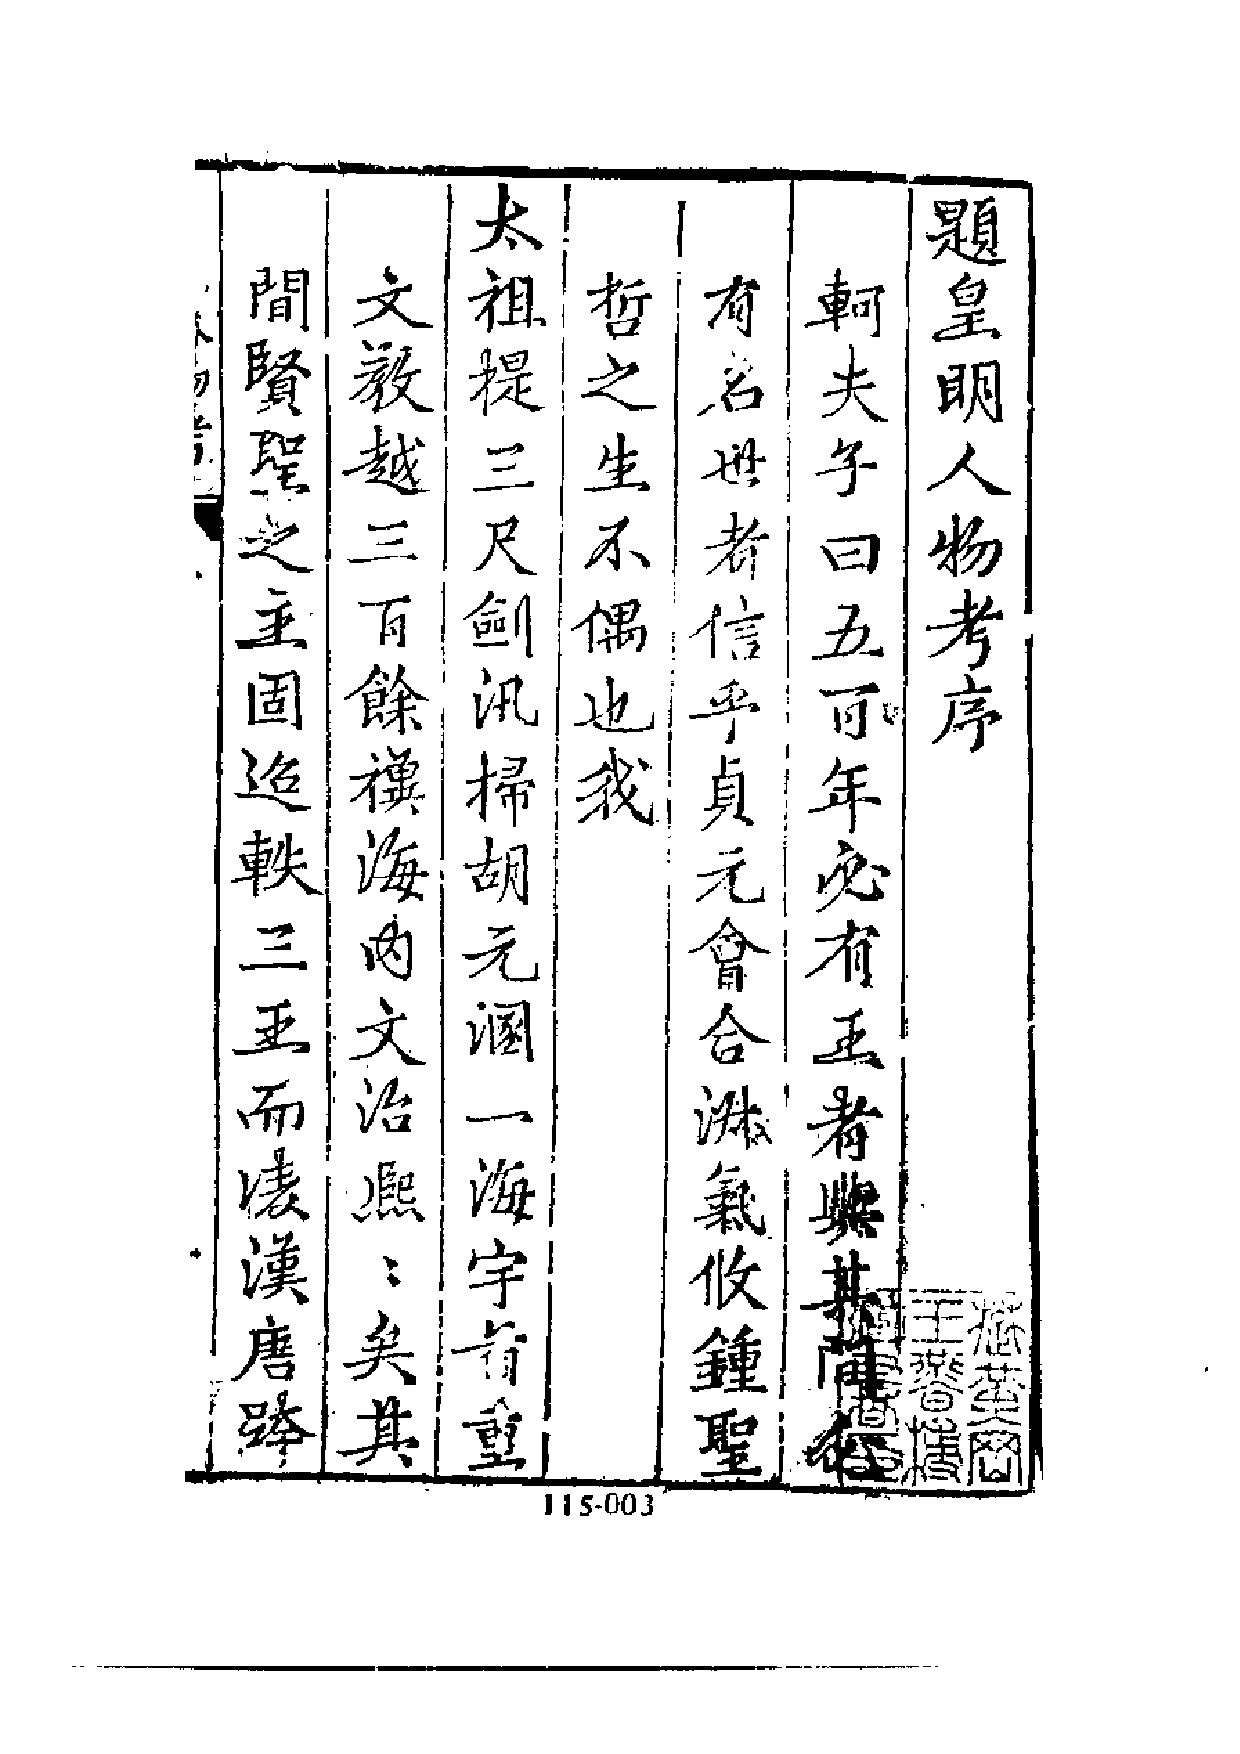 題皇明人物考序
軻夫子曰五百年必有王者興其間必
有名世者信乎貞元會合淑氣攸鍾聖
哲之生不偶也我
太祖提三尺劍汛掃胡元溷一海宇首重
文教越三百餘禩海内文治熈〻矣其
間賢聖之主固迨軼三王而凌漢唐跨
115-003